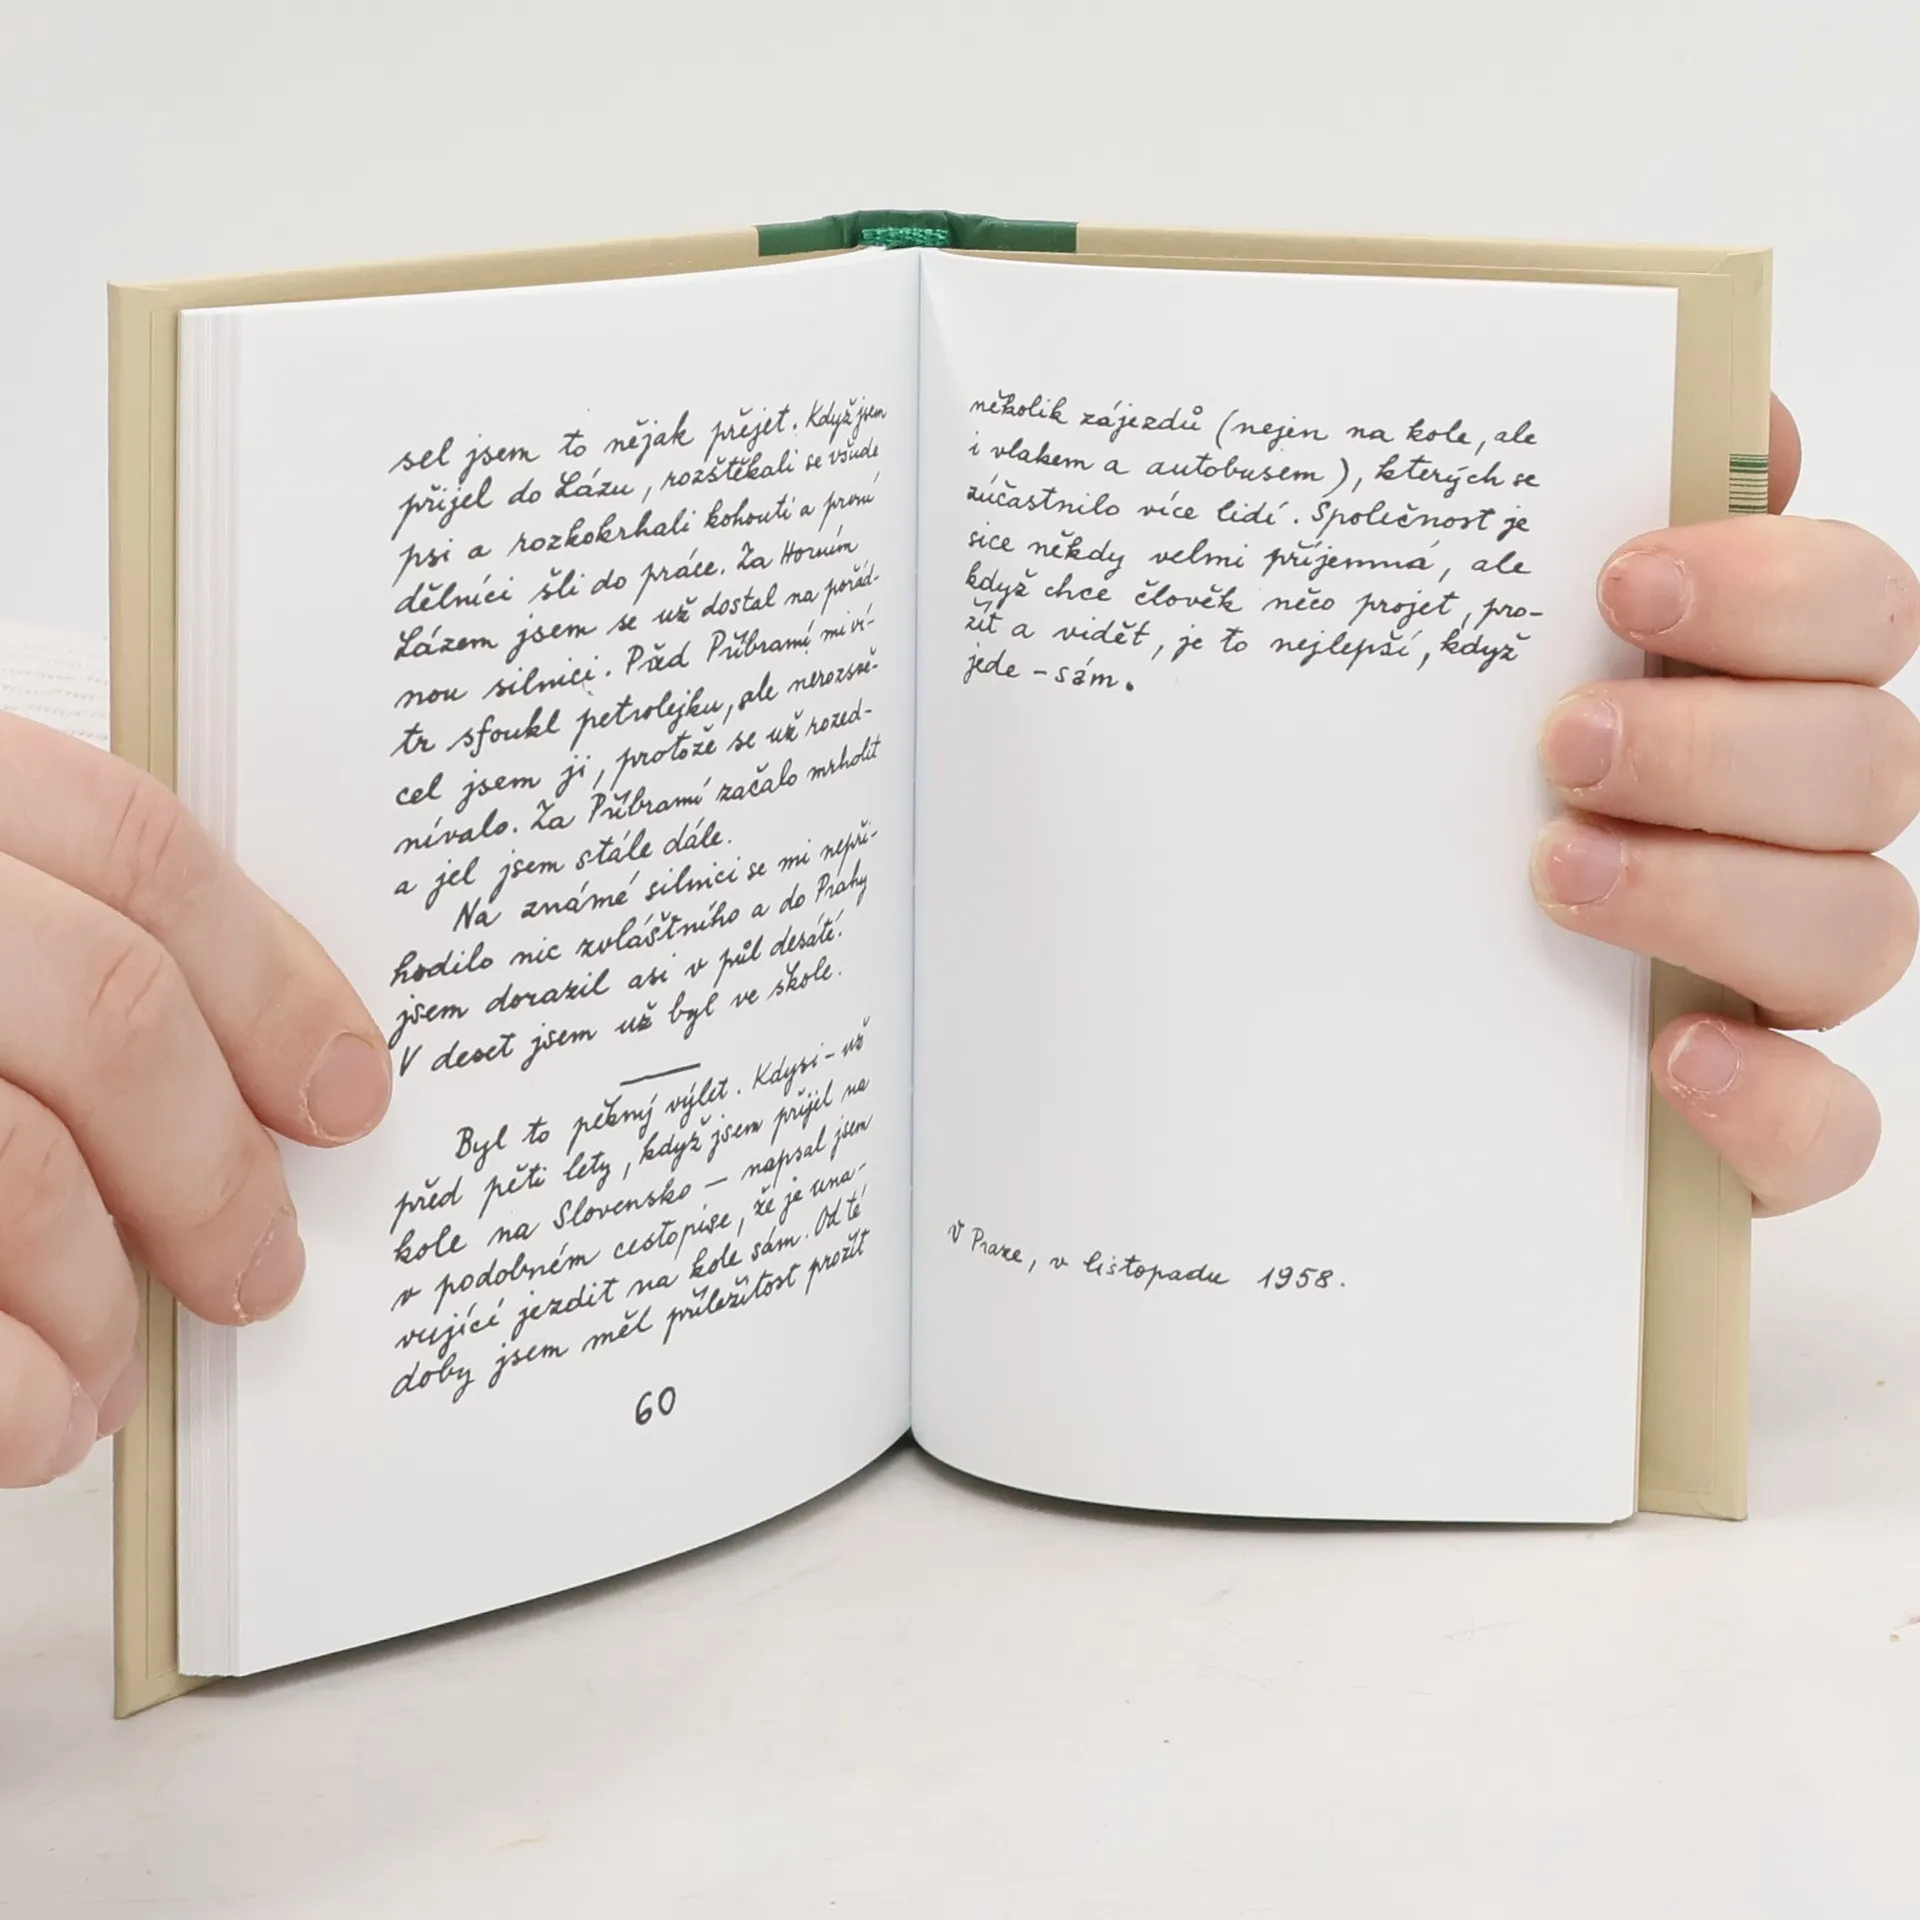 sel jsem to nějak přejet. Když jsem
přijel do Lázu, rozštěkali se všude
psi a rozkokrhali kohouti a první
dělníci šli do práce. Za Horním
Lázem jsem se už dostal na pořád-
nou silnici. Před Příbramí mi ví-
tr sfoukl petrolejku, ale nerozsvě-
cel jsem ji, protože se už rozed-
nívalo. Za Příbramí začalo mrholit
a jel jsem stále dále.
Na známé silnici se mi nepři-
hodilo nic zvláštního a do Prahy
jsem dorazil asi v půl desáté.
V deset jsem už byl ve škole.
Byl to pěkný výlet. Kdysi - už
před pěti lety, když jsem přijel na
kole na Slovensko - napsal jsem
v podobném cestopise, že je una-
vující jezdit na kole sám. Od té
doby jsem měl příležitost prožít
60
několik zájezdů (nejen na kole, ale
i vlakem a autobusem), kterých se
zúčastnilo více lidí. Společnost je
sice někdy velmi příjemná, ale
když chce člověk něco projet, pro-
žít a vidět, je to nejlepší, když
jede - sám.
V Praze, v listopadu 1958.